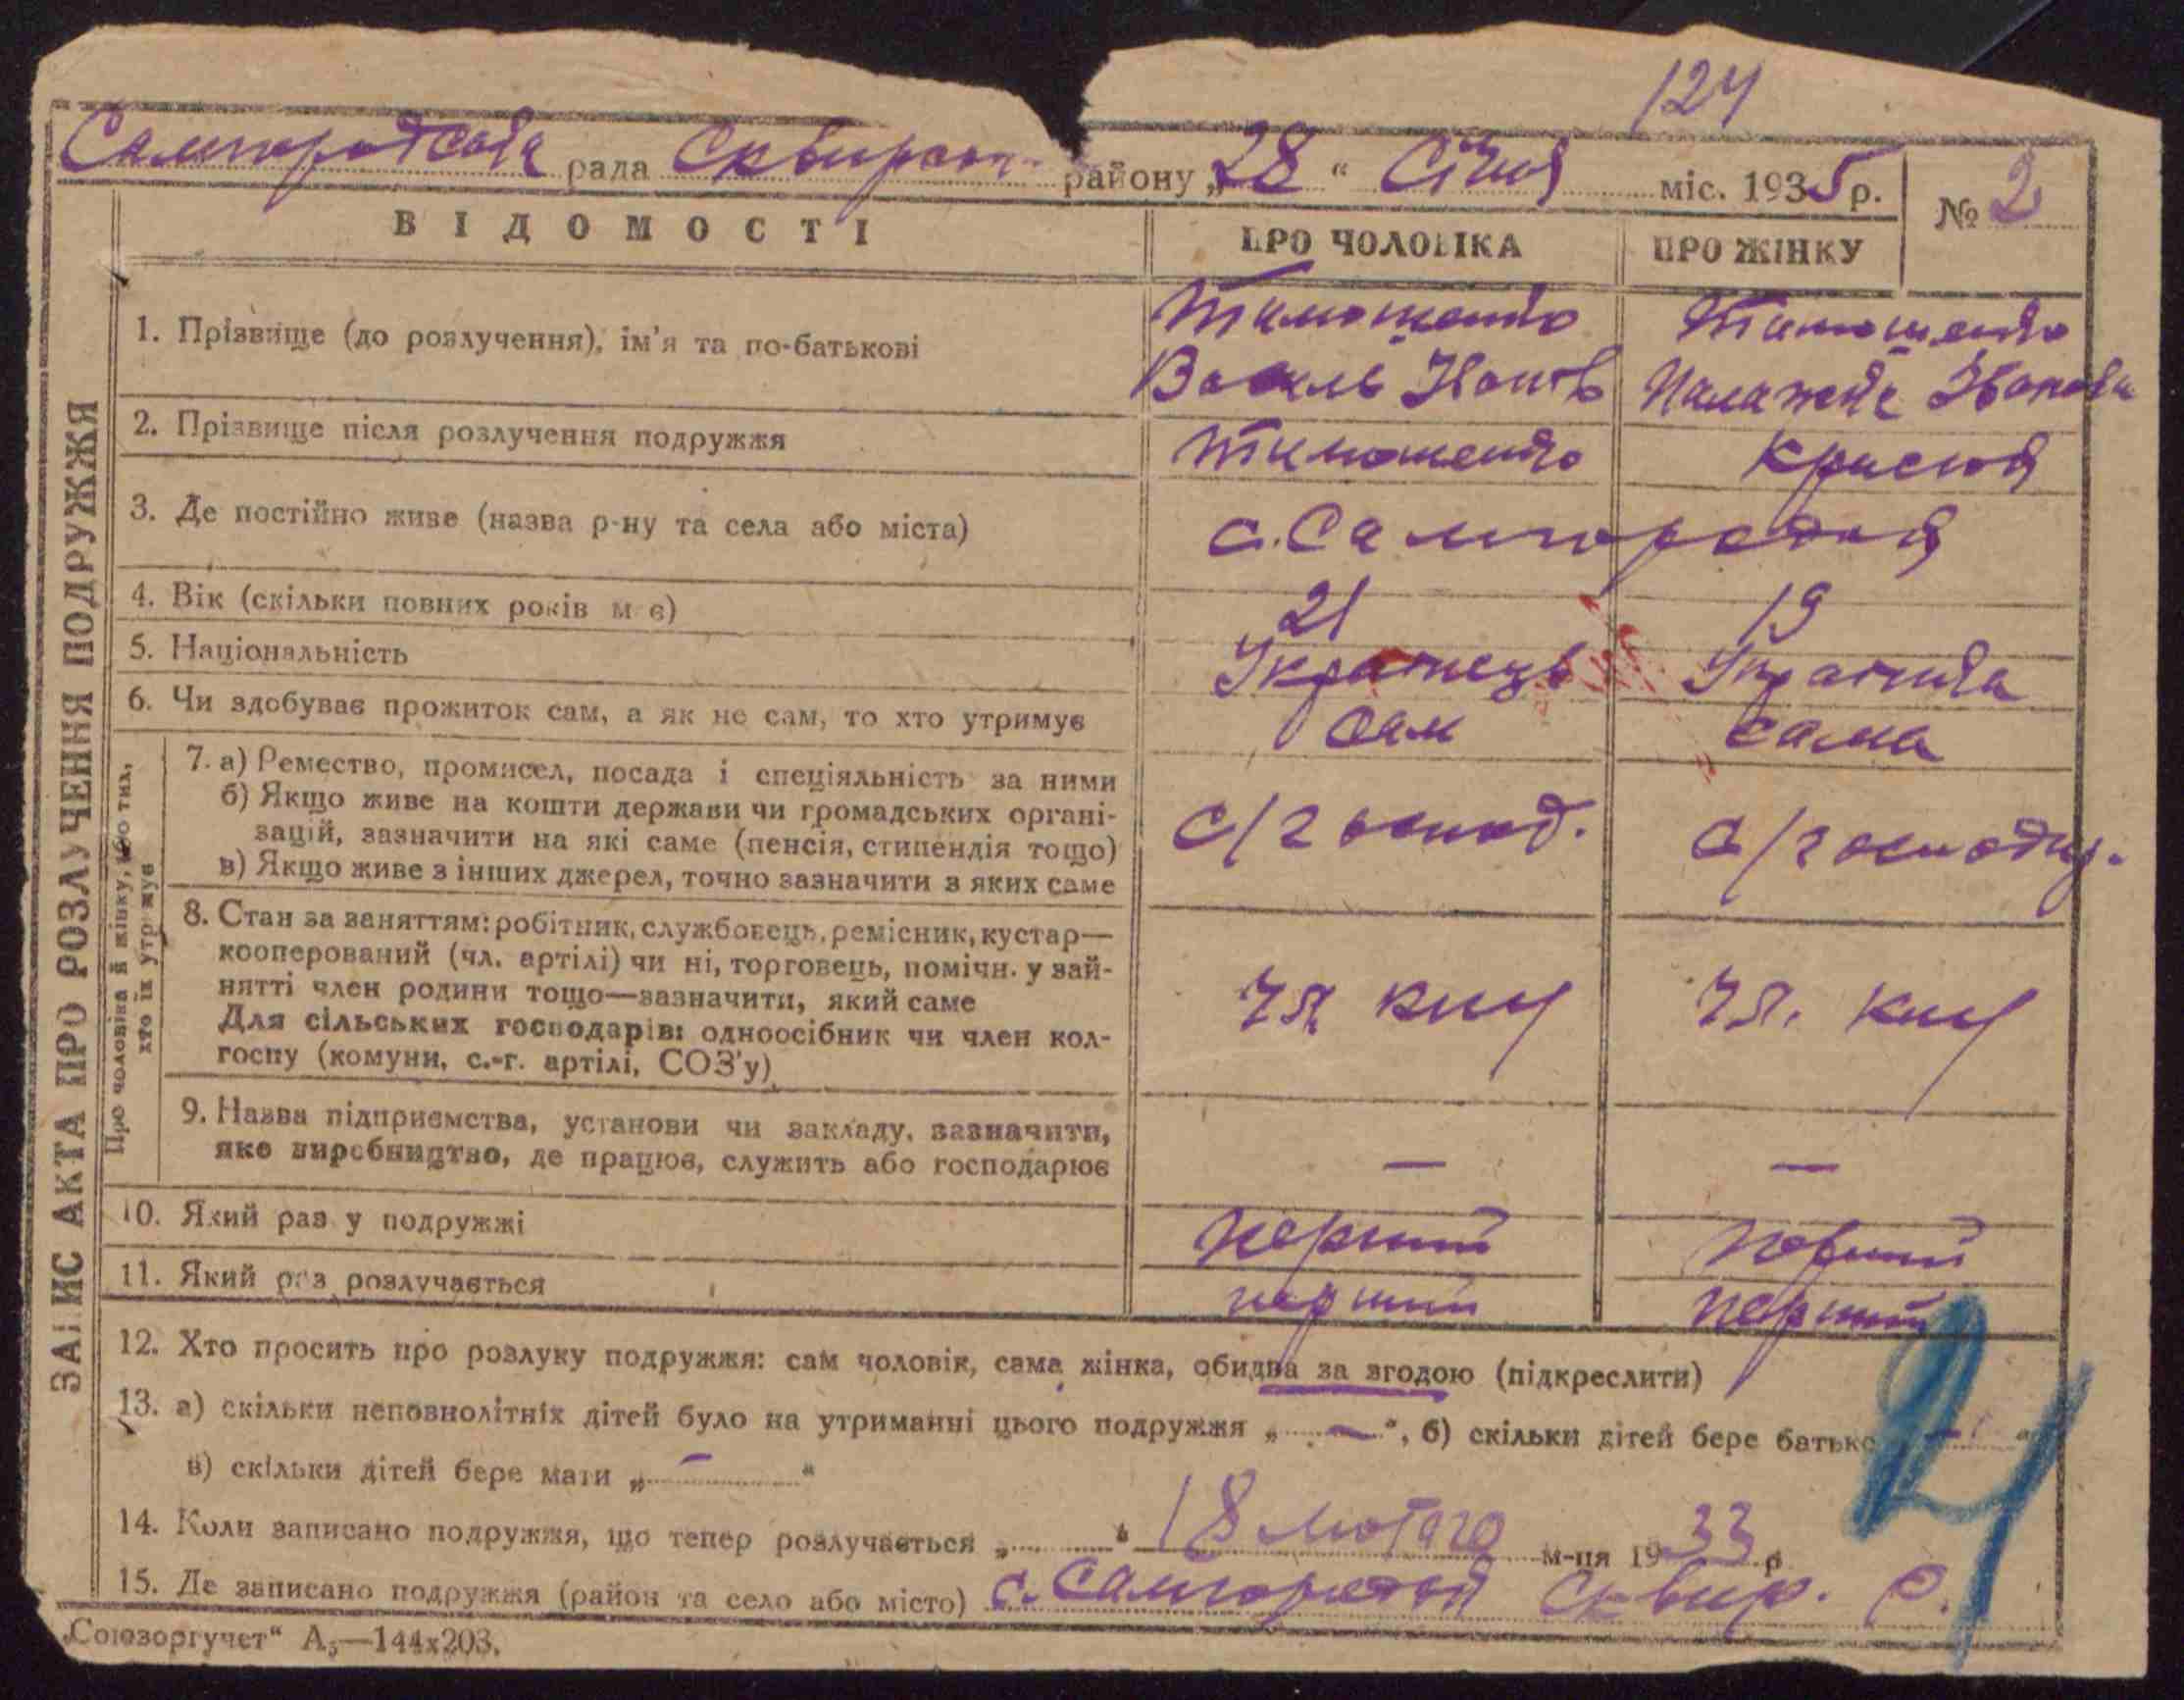 124
Самгородська рада Сквирськ. району „28“ Січня міс. 1935 р. № 2
ВІДОМОСТІ ПРО ЧОЛОВІКА ПРО ЖІНКУ
ЗАПИС АКТА ПРО РОЗЛУЧЕННЯ ПОДРУЖЖЯ
1. Прізвище (до розлучення), ім'я та по-батькові Тимошенко Тимошенко
Василь Іванов Палажка Іванова
2. Прізвище після розлучення подружжя Тимошенко
3. Де постійно живе (назва р-ну та села або міста) с. Самгородок
4. Вік (скільки повних років м є) 21 19
5. Національність Українець Українка
6. Чи здобуває прожиток сам, а як не сам, то хто утримує сам сама
Про чоловіка й жінку, або тих,
хто їх утримує
7. а) Ремество, промисел, посада і спеціяльність за ними
б) Якщо живе на кошти держави чи громадських органі-
зацій, зазначити на які саме (пенсія, стипендія тощо)
в) Якщо живе з інших джерел, точно зазначити з яких саме
с/господ. с/господар.
8. Стан за заняттям: робітник, службовець, ремісник, кустар—
кооперований (чл. артілі) чи ні, торговець, помічн. у зай-
нятті член родини тощо—зазначити, який саме
Для сільських господарів: одноосібник чи член кол-
госпу (комуни, с.-г. артілі, СОЗ'у)
9. Назва підприємства, установи чи закладу, зазначити,
яке виробництво, де працює, служить або господарює — —
10. Який раз у подружжі перший перший
11. Який раз розлучається перший перший
12. Хто просить про розлуку подружжя: сам чоловік, сама жінка, обидва за згодою (підкреслити)
13. а) скільки неповнолітніх дітей було на утриманні цього подружжя „—“, б) скільки дітей бере батько „—“
в) скільки дітей бере мати „—“
14. Коли записано подружжя, що тепер розлучається „ “ 18 лютого м-ця 1933 р.
15. Де записано подружжя (район та село або місто) с. Самгородок Сквир. р.
„Союзоргучет“ А₅—144х203.